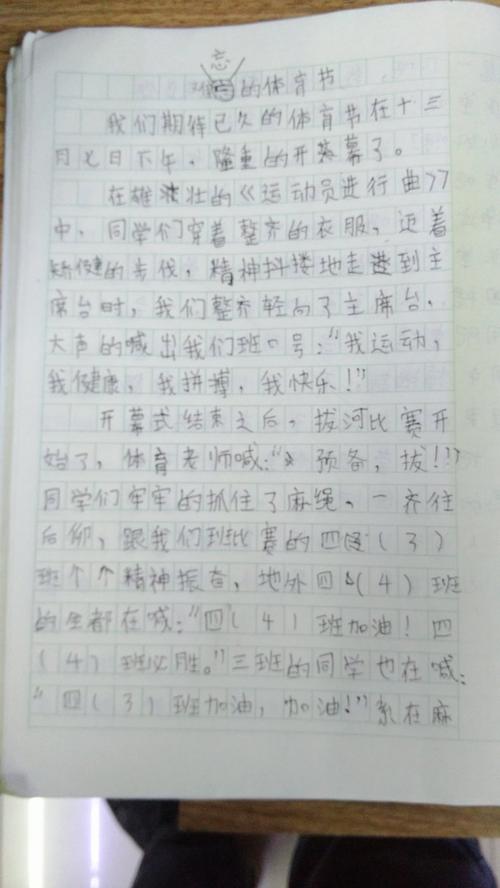 忘
难的体育节
我们期待已久的体育节在十三
月七日下午，隆重的开幕了。
在雄壮的《运动员进行曲》
中，同学们穿着整齐的衣服，迈着
矫健的步伐，精神抖擞地走进到主
席台时，我们整齐转向了主席台，
大声的喊出我们班口号：“我运动，
我健康，我拼搏，我快乐！”
开幕式结束之后，拔河比赛开
始了，体育老师喊：“预备，拔！”
同学们牢牢的抓住了麻绳，一齐往
后仰，跟我们班比赛的四（3）
班个个精神振奋，地外四（4）班
的生都在喊：“四（4）班加油！四
（4）班必胜。”三班的同学也在喊：
“四（3）班加油，加油！”系在麻